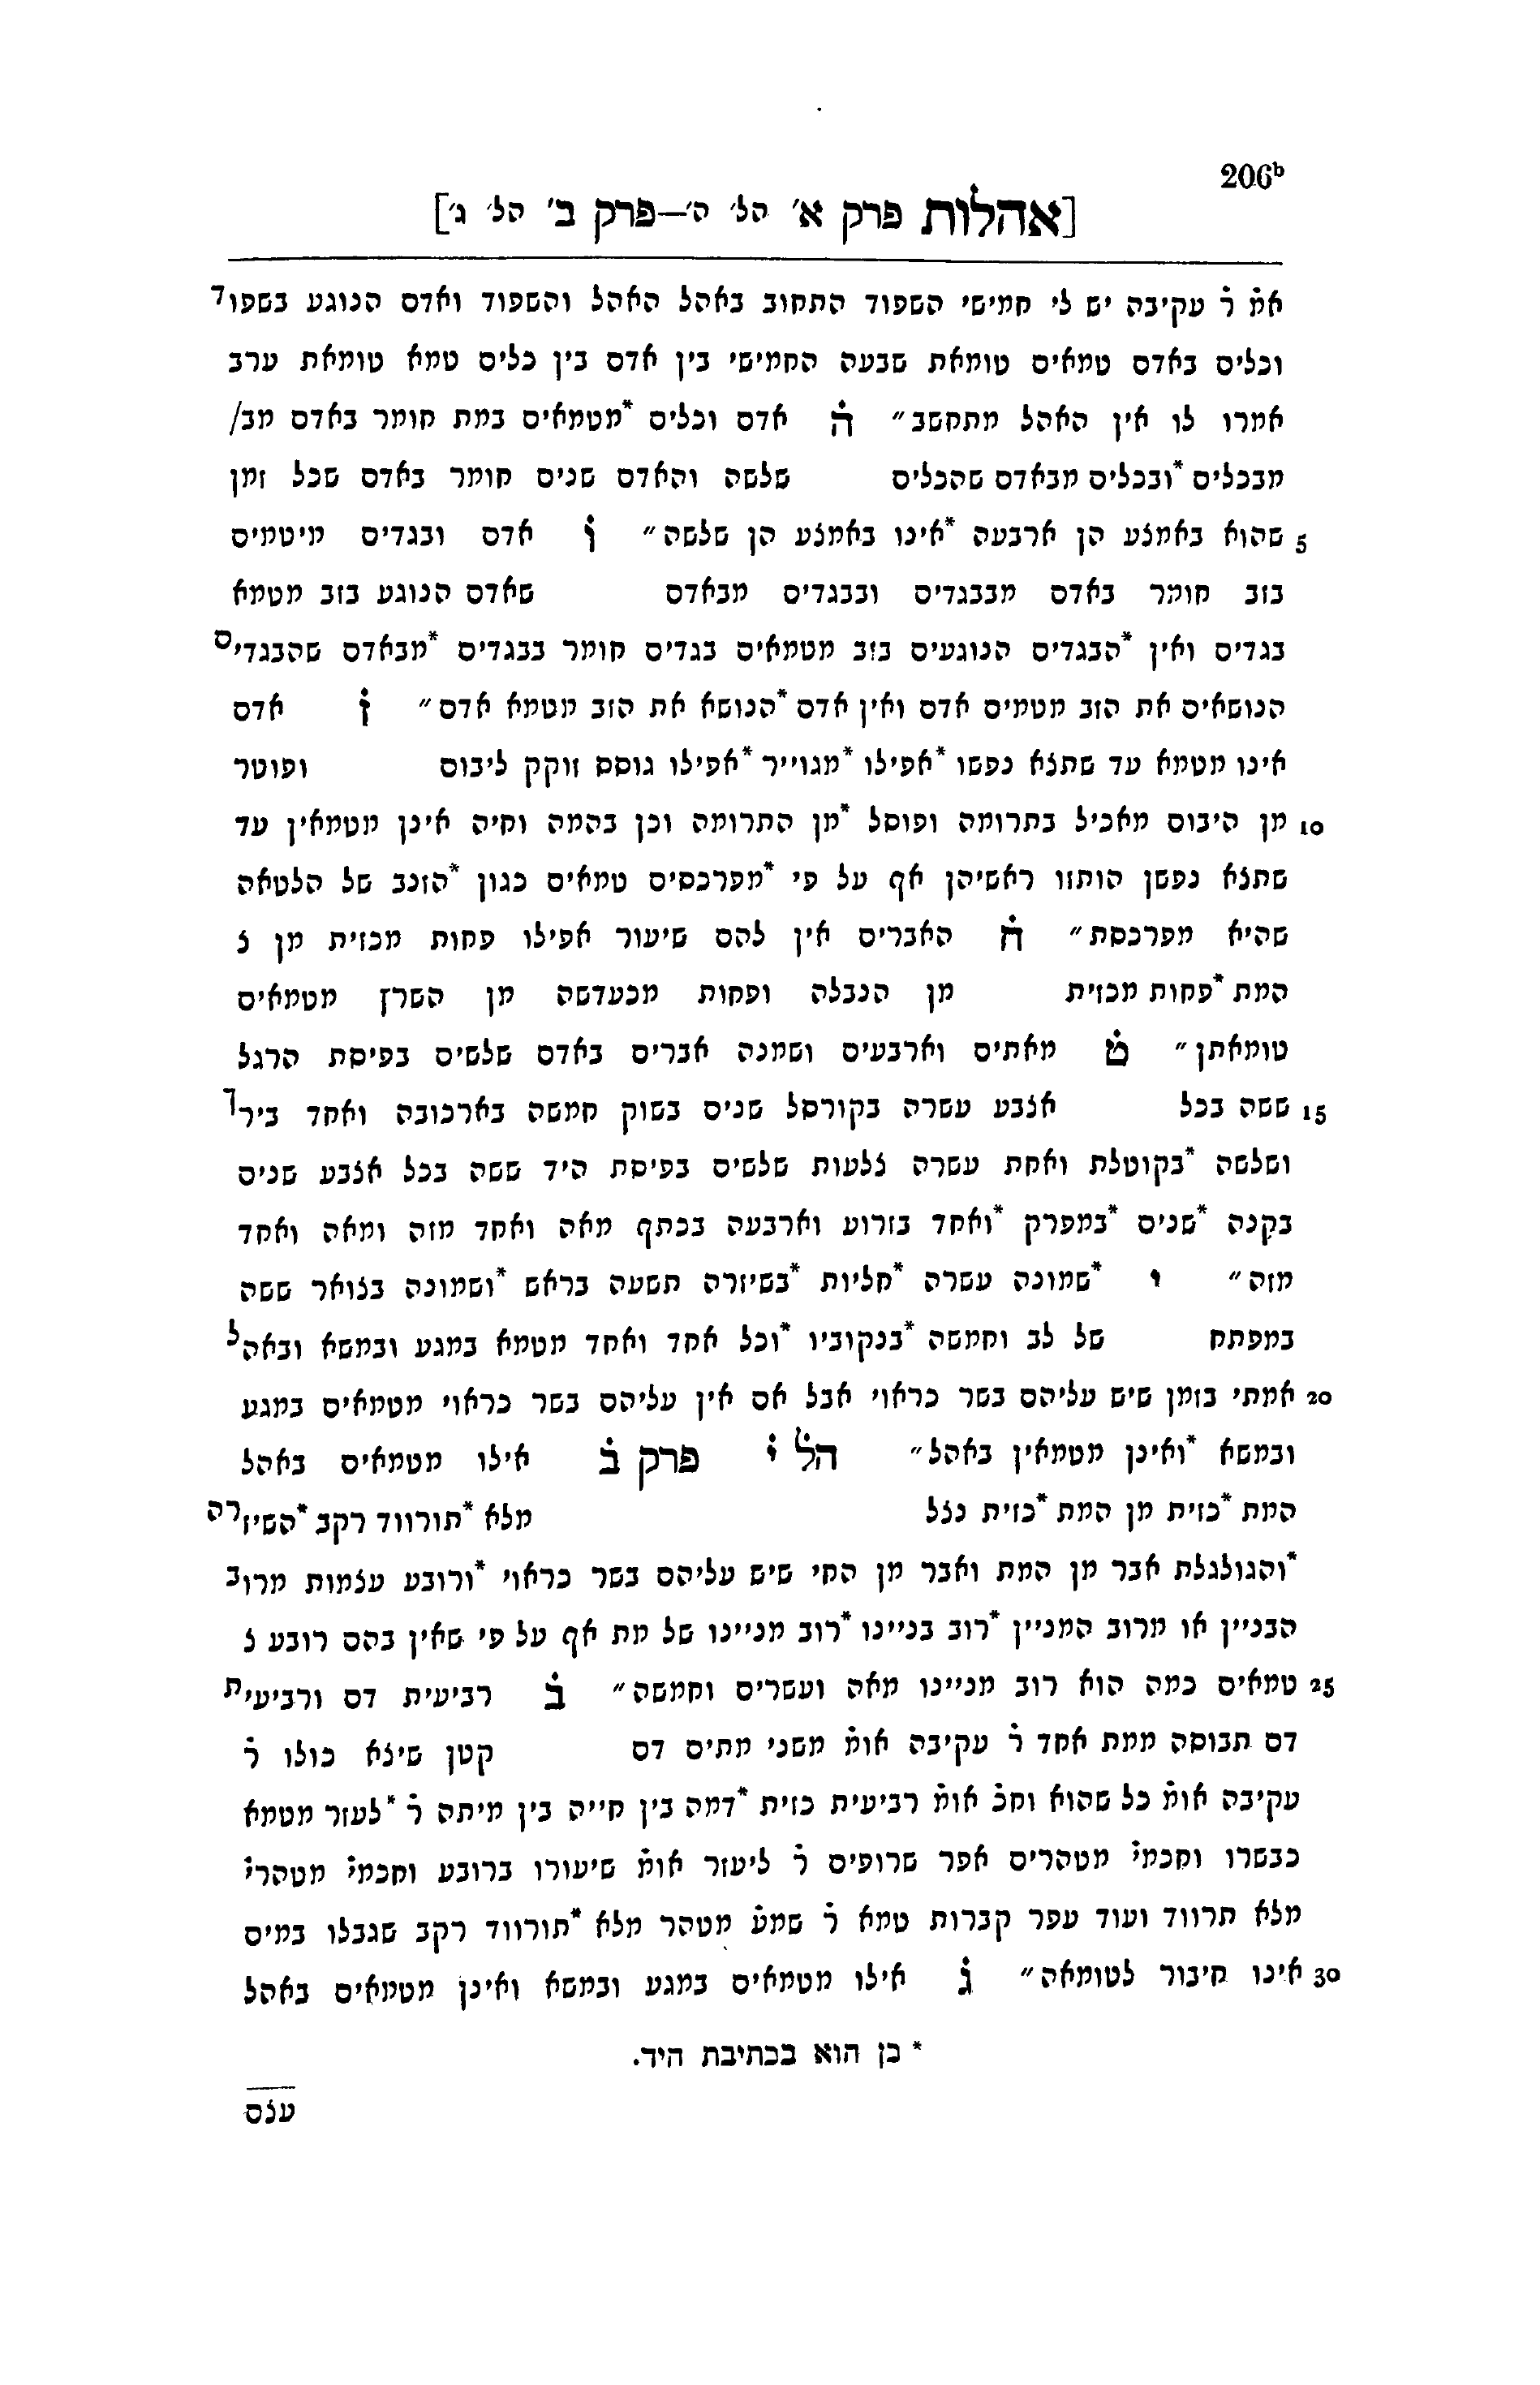 206b
[אהלות פרק א׳ הל׳ ה׳—פרק ב׳ הל׳ ג׳]
אמ̇ ר̇ עקיבה יש לי חמישי השפוד התחוב באהל האהל והשפוד ואדם הנוגע בשפוד
וכלים באדם טמאים טומאת שבעה החמישי בין אדם בין כלים טמא טומאת ערב
אמרו לו אין האהל מתחשב״ ה̇ אדם וכלים *מטמאים במת חומר באדם מב/
מבכלים *ובכלים מבאדם שהכלים שלשה והאדם שנים חומר באדם שכל זמן
5 שהוא באמצע הן ארבעה *אינו באמצע הן שלשה״ ו̇ אדם ובגדים מיטמים
בזב חומר באדם מבבגדים ובבגדים מבאדם שאדם הנוגע בזב מטמא
בגדים ואין *הבגדים הנוגעים בזב מטמאים בגדים חומר בבגדים *מבאדם שהבגדים
הנושאים את הזב מטמים אדם ואין אדם *הנושא את הזב מטמא אדם״ ז̇ אדם
אינו מטמא עד שתצא נפשו *אפילו *מגוייר *אפילו גוסס זוקק ליבום ופוטר
10 מן היבום מאכיל בתרומה ופוסל *מן התרומה וכן בהמה וחיה אינן מטמאין עד
שתצא נפשן הותזו ראשיהן אף על פי *מפרכסים טמאים כגון *הזנב של הלטאה
שהיא מפרכסת״ ח̇ האברים אין להם שיעור אפילו פחות מכזית מן צ
המת *פחות מכזית מן הנבלה ופחות מכעדשה מן השרץ מטמאים
טומאתן״ ט̇ מאתים וארבעים ושמנה אברים באדם שלשים בפיסת הרגל
15 ששה בכל אצבע עשרה בקורסל שנים בשוק חמשה בארכובה ואחד בירך
ושלשה *בקוטלת ואחת עשרה צלעות שלשים בפיסת היד ששה בכל אצבע שנים
בקנה *שנים *במפרק *ואחד בזרוע וארבעה בכתף מאה ואחד מזה ומאה ואחד
מזה״ י *שמונה עשרה *חליות *בשיזרה תשעה בראש *ושמונה בצואר ששה
במפתח של לב וחמשה *בנקוביו *וכל אחד ואחד מטמא במגע ובמשא ובאהל
20 אמתי בזמן שיש עליהם בשר כראוי אבל אם אין עליהם בשר כראוי מטמאים במגע
ובמשא *ואינן מטמאין באהל״ הל̇ י̇ פרק ב̇ אילו מטמאים באהל
המת *כזית מן המת *כזית נצל מלא *תורווד רקב *השיזרה
*והגולגלת אבר מן המת ואבר מן החי שיש עליהם בשר כראוי *ורובע עצמות מרוב
הבניין או מרוב המניין *רוב בניינו *רוב מניינו של מת אף על פי שאין בהם רובע צ
25 טמאים כמה הוא רוב מניינו מאה ועשרים וחמשה״ ב̇ רביעית דם ורביעית
דם תבוסה ממת אחד ר̇ עקיבה אומ̇ משני מתים דם קטן שיצא כולו ר̇
עקיבה אומ̇ כל שהוא וחכ̇ אומ̇ רביעית כזית *דמה בין חייה בין מיתה ר̇ *לעזר מטמא
כבשרו וחכמי̇ מטהרים אפר שרופים ר̇ ליעזר אומ̇ שיעורו ברובע וחכמי̇ מטהרי̇
מלא תרווד ועוד עפר קברות טמא ר̇ שמע̇ מטהר מלא *תורווד רקב שגבלו במים
30 אינו חיבור לטומאה״ ג̇ אילו מטמאים במגע ובמשא ואינן מטמאים באהל
* כן הוא בכתיבת היד.
עצם